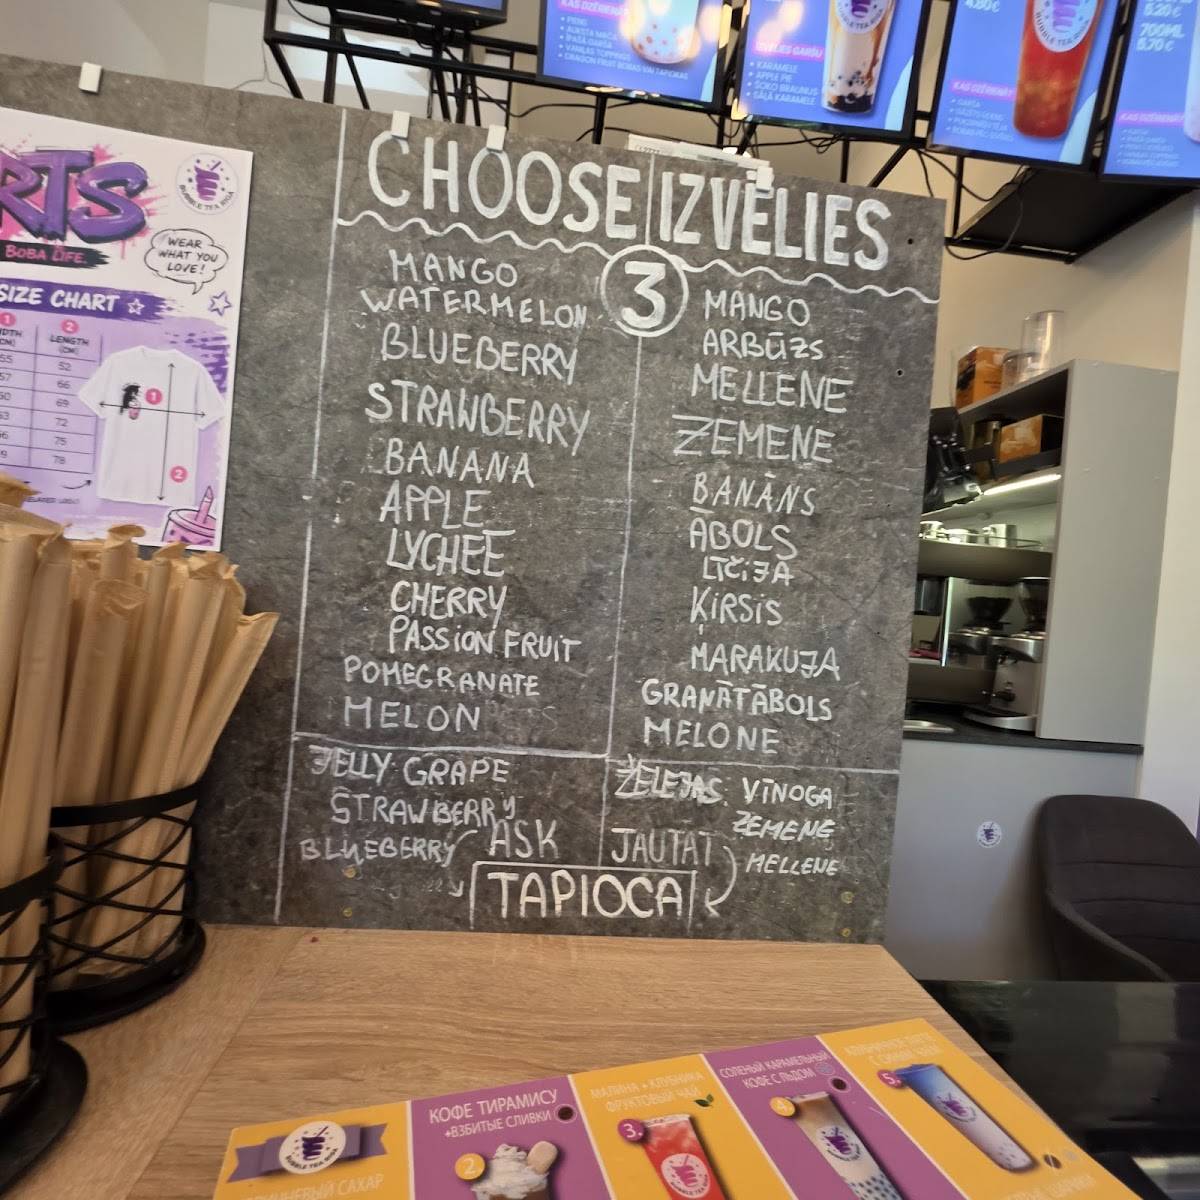 KAS DZĒRIENĀ?
• PIENS
• VANIĻAS TOPPINGS
• DRAGON FRUIT BOBAS VAI TAPIOKAS
IZVĒLIES GARŠU
• KARAMELE
• APPLE PIE
• ŠOKO BRAUNIJS
• SĀĻĀ KARAMELE
4.80€
BUBBLE TEA RIGA
KAS DZĒRIENĀ?
• GARŠA
5.20€
700ML
5.70€
RTS
BOBA LIFE.
BUBBLE TEA RIGA
WEAR
WHAT YOU
LOVE!
SIZE CHART
1
2
LENGTH
(CM)
52
66
69
72
75
78
1
2
CHOOSE IZVĒLIES
3
MANGO
WATERMELON
BLUEBERRY
STRAWBERRY
BANANA
APPLE
LYCHEE
CHERRY
PASSION FRUIT
POMEGRANATE
MELON
MANGO
ARBŪZS
MELLENE
ZEMENE
BANĀNS
ĀBOLS
LĪČIJA
ĶIRSIS
MARAKUJA
GRANĀTĀBOLS
MELONE
JELLY GRAPE
STRAWBERRY
BLUEBERRY
ASK
ŽELEJAS VĪNOGA
ZEMENE
MELLENE
JAUTĀT
TAPIOCA
BUBBLE TEA RIGA
КОФЕ ТИРАМИСУ
+ВЗБИТЫЕ СЛИВКИ
2.
МАЛИНА + КЛУБНИКА
ФРУКТОВЫЙ ЧАЙ
3.
СОЛЕНЫЙ КАРАМЕЛЬНЫЙ
КОФЕ С ЛЬДОМ
4.
5.